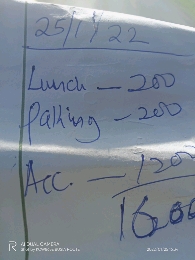 25/1/22
Lunch - 200
Palking - 200
Acc. - 1200
1600
AI DUAL CAMERA